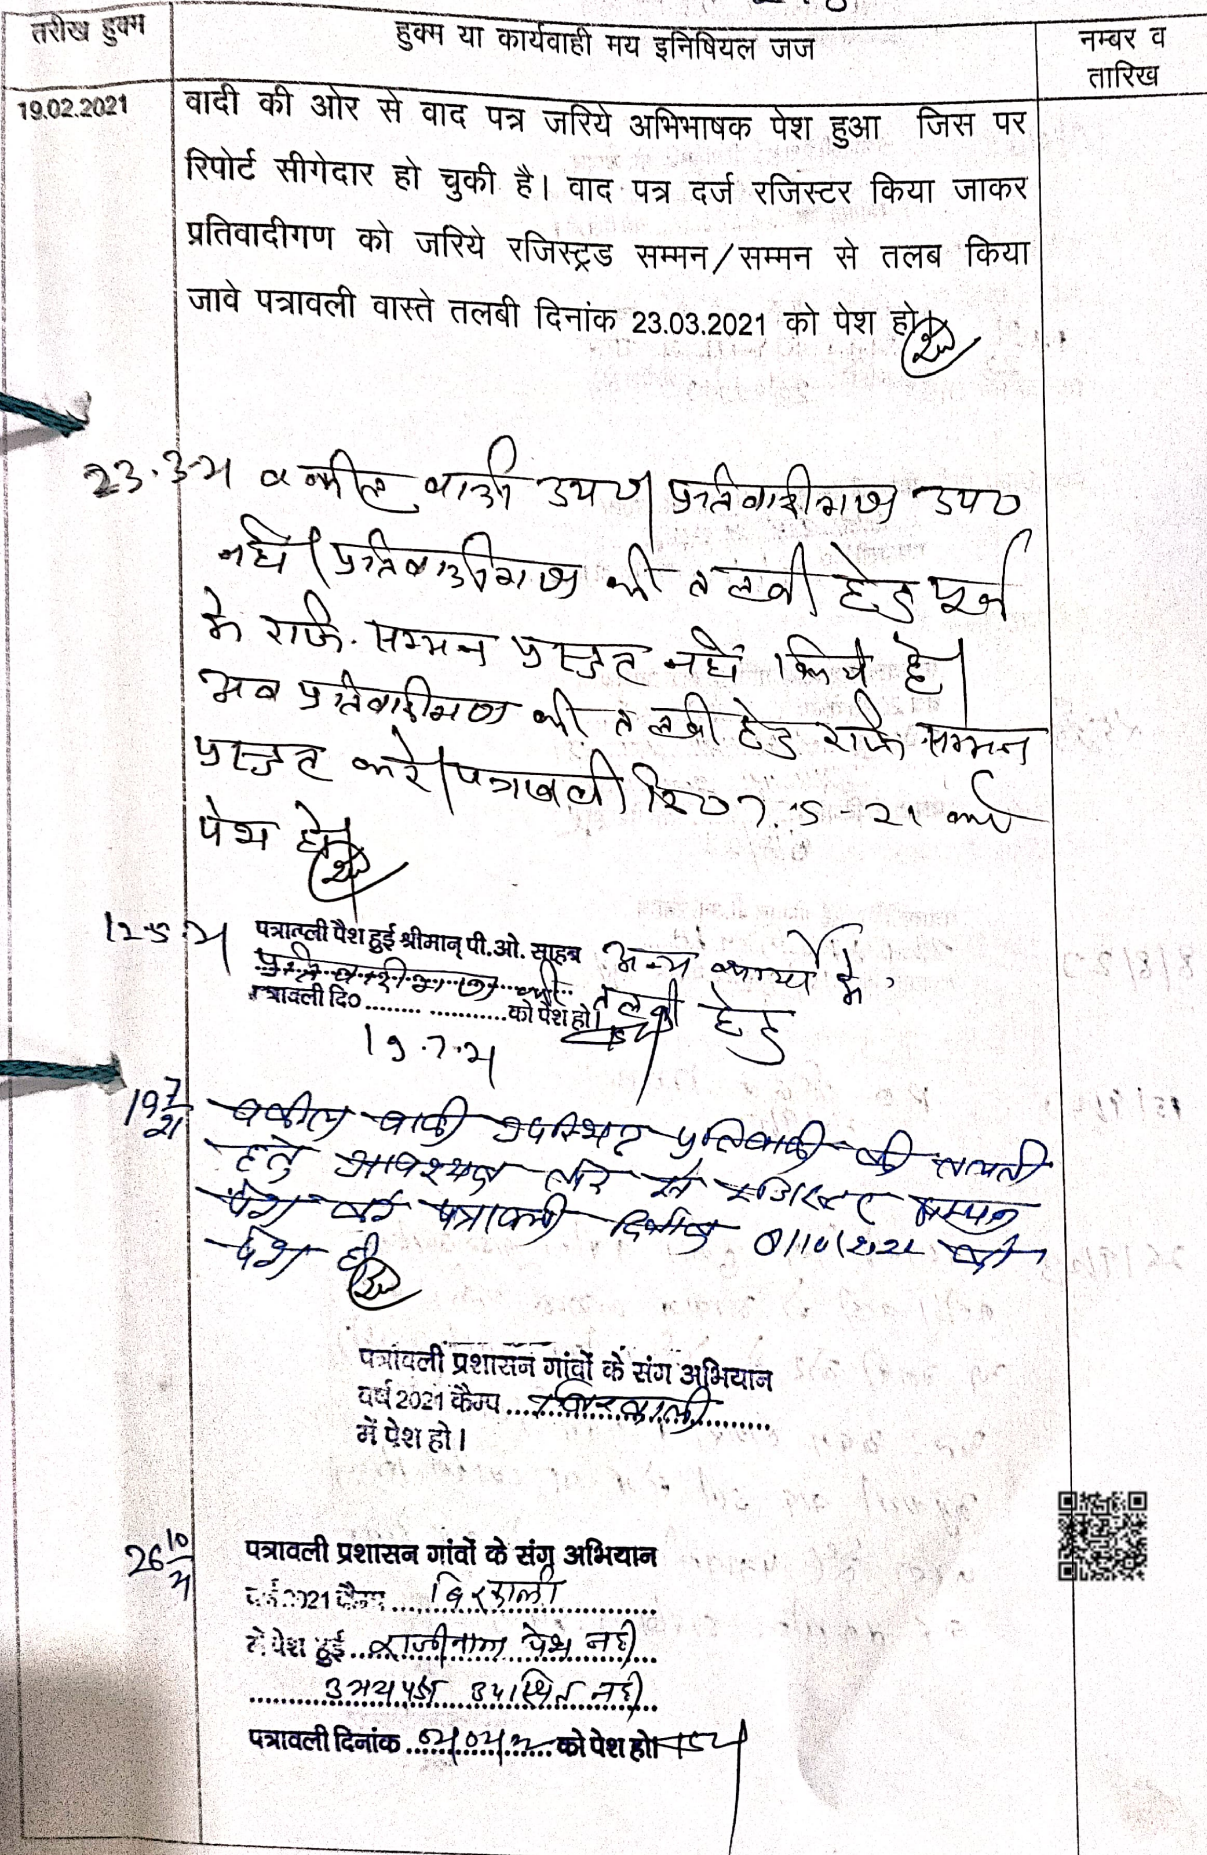 तरीख हुक्म
हुक्म या कार्यवाही मय इनिषियल जज
नम्बर व
तारिख
19.02.2021
वादी की ओर से वाद पत्र जरिये अभिभाषक पेश हुआ जिस पर
रिपोर्ट सीगेदार हो चुकी है। वाद पत्र दर्ज रजिस्टर किया जाकर
प्रतिवादीगण को जरिये रजिस्ट्रड सम्मन/सम्मन से तलब किया
जावे पत्रावली वास्ते तलबी दिनांक 23.03.2021 को पेश हो।
23.3.21 वकील वादी उप०। प्रतिवादीगण उप०
नहीं। प्रतिवादीगण की तलबी हेतु पूर्व
के रजि. सम्मन प्रस्तुत नहीं किये है।
अब प्रतिवादीगण की तलबी हेतु रजि. सम्मन
प्रस्तुत करे। पत्रावली दि० 7.5-21 को
पेश हो।
12.5.21 पत्रावली पैश हुई श्रीमान् पी.ओ. साहब अन्य कार्य में,
प्रतिवादीगण की तलबी हेतु
पत्रावली दि० ........ को पेश हो।
19.7.21
19 7/21 वकील वादी उपस्थित प्रतिवादी की तलबी
हेतु आवश्यक तौर से रजिस्टर सम्मन
पेश करे पत्रावली दिनांक 8/10/2021 को
पेश हो
पत्रावली प्रशासन गांवों के संग अभियान
वर्ष 2021 कैम्प .... बिरकाली
में पेश हो।
26 10/21
पत्रावली प्रशासन गांवों के संग अभियान
वर्ष 2021 कैम्प .... बिरकाली
में पेश हुई .. राजीनामा पेश नहीं
उभयपक्ष उपस्थित नहीं
पत्रावली दिनांक ........ को पेश हो।